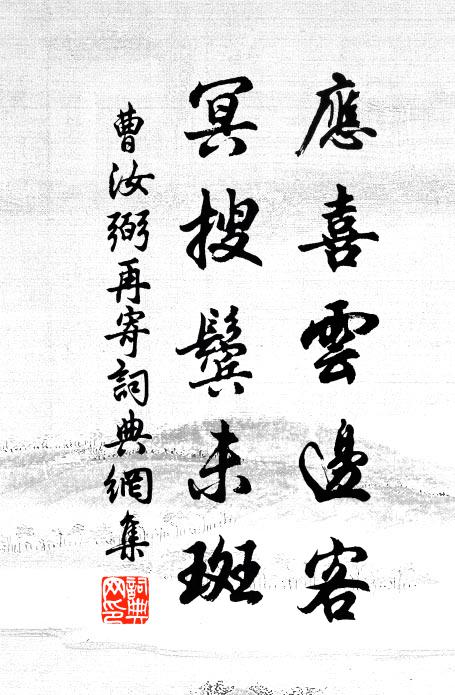 應喜雲邊客
冥搜鬢未斑
曹汝弼再寄詞典網集
詞典
网印